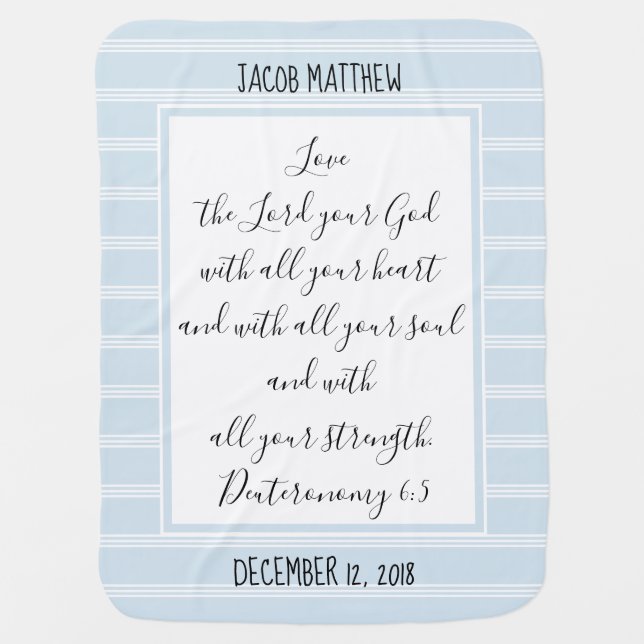 JACOB MATTHEW
Love
the Lord your God
with all your heart
and with all your soul
and with
all your strength.
Deuteronomy 6:5
DECEMBER 12, 2018